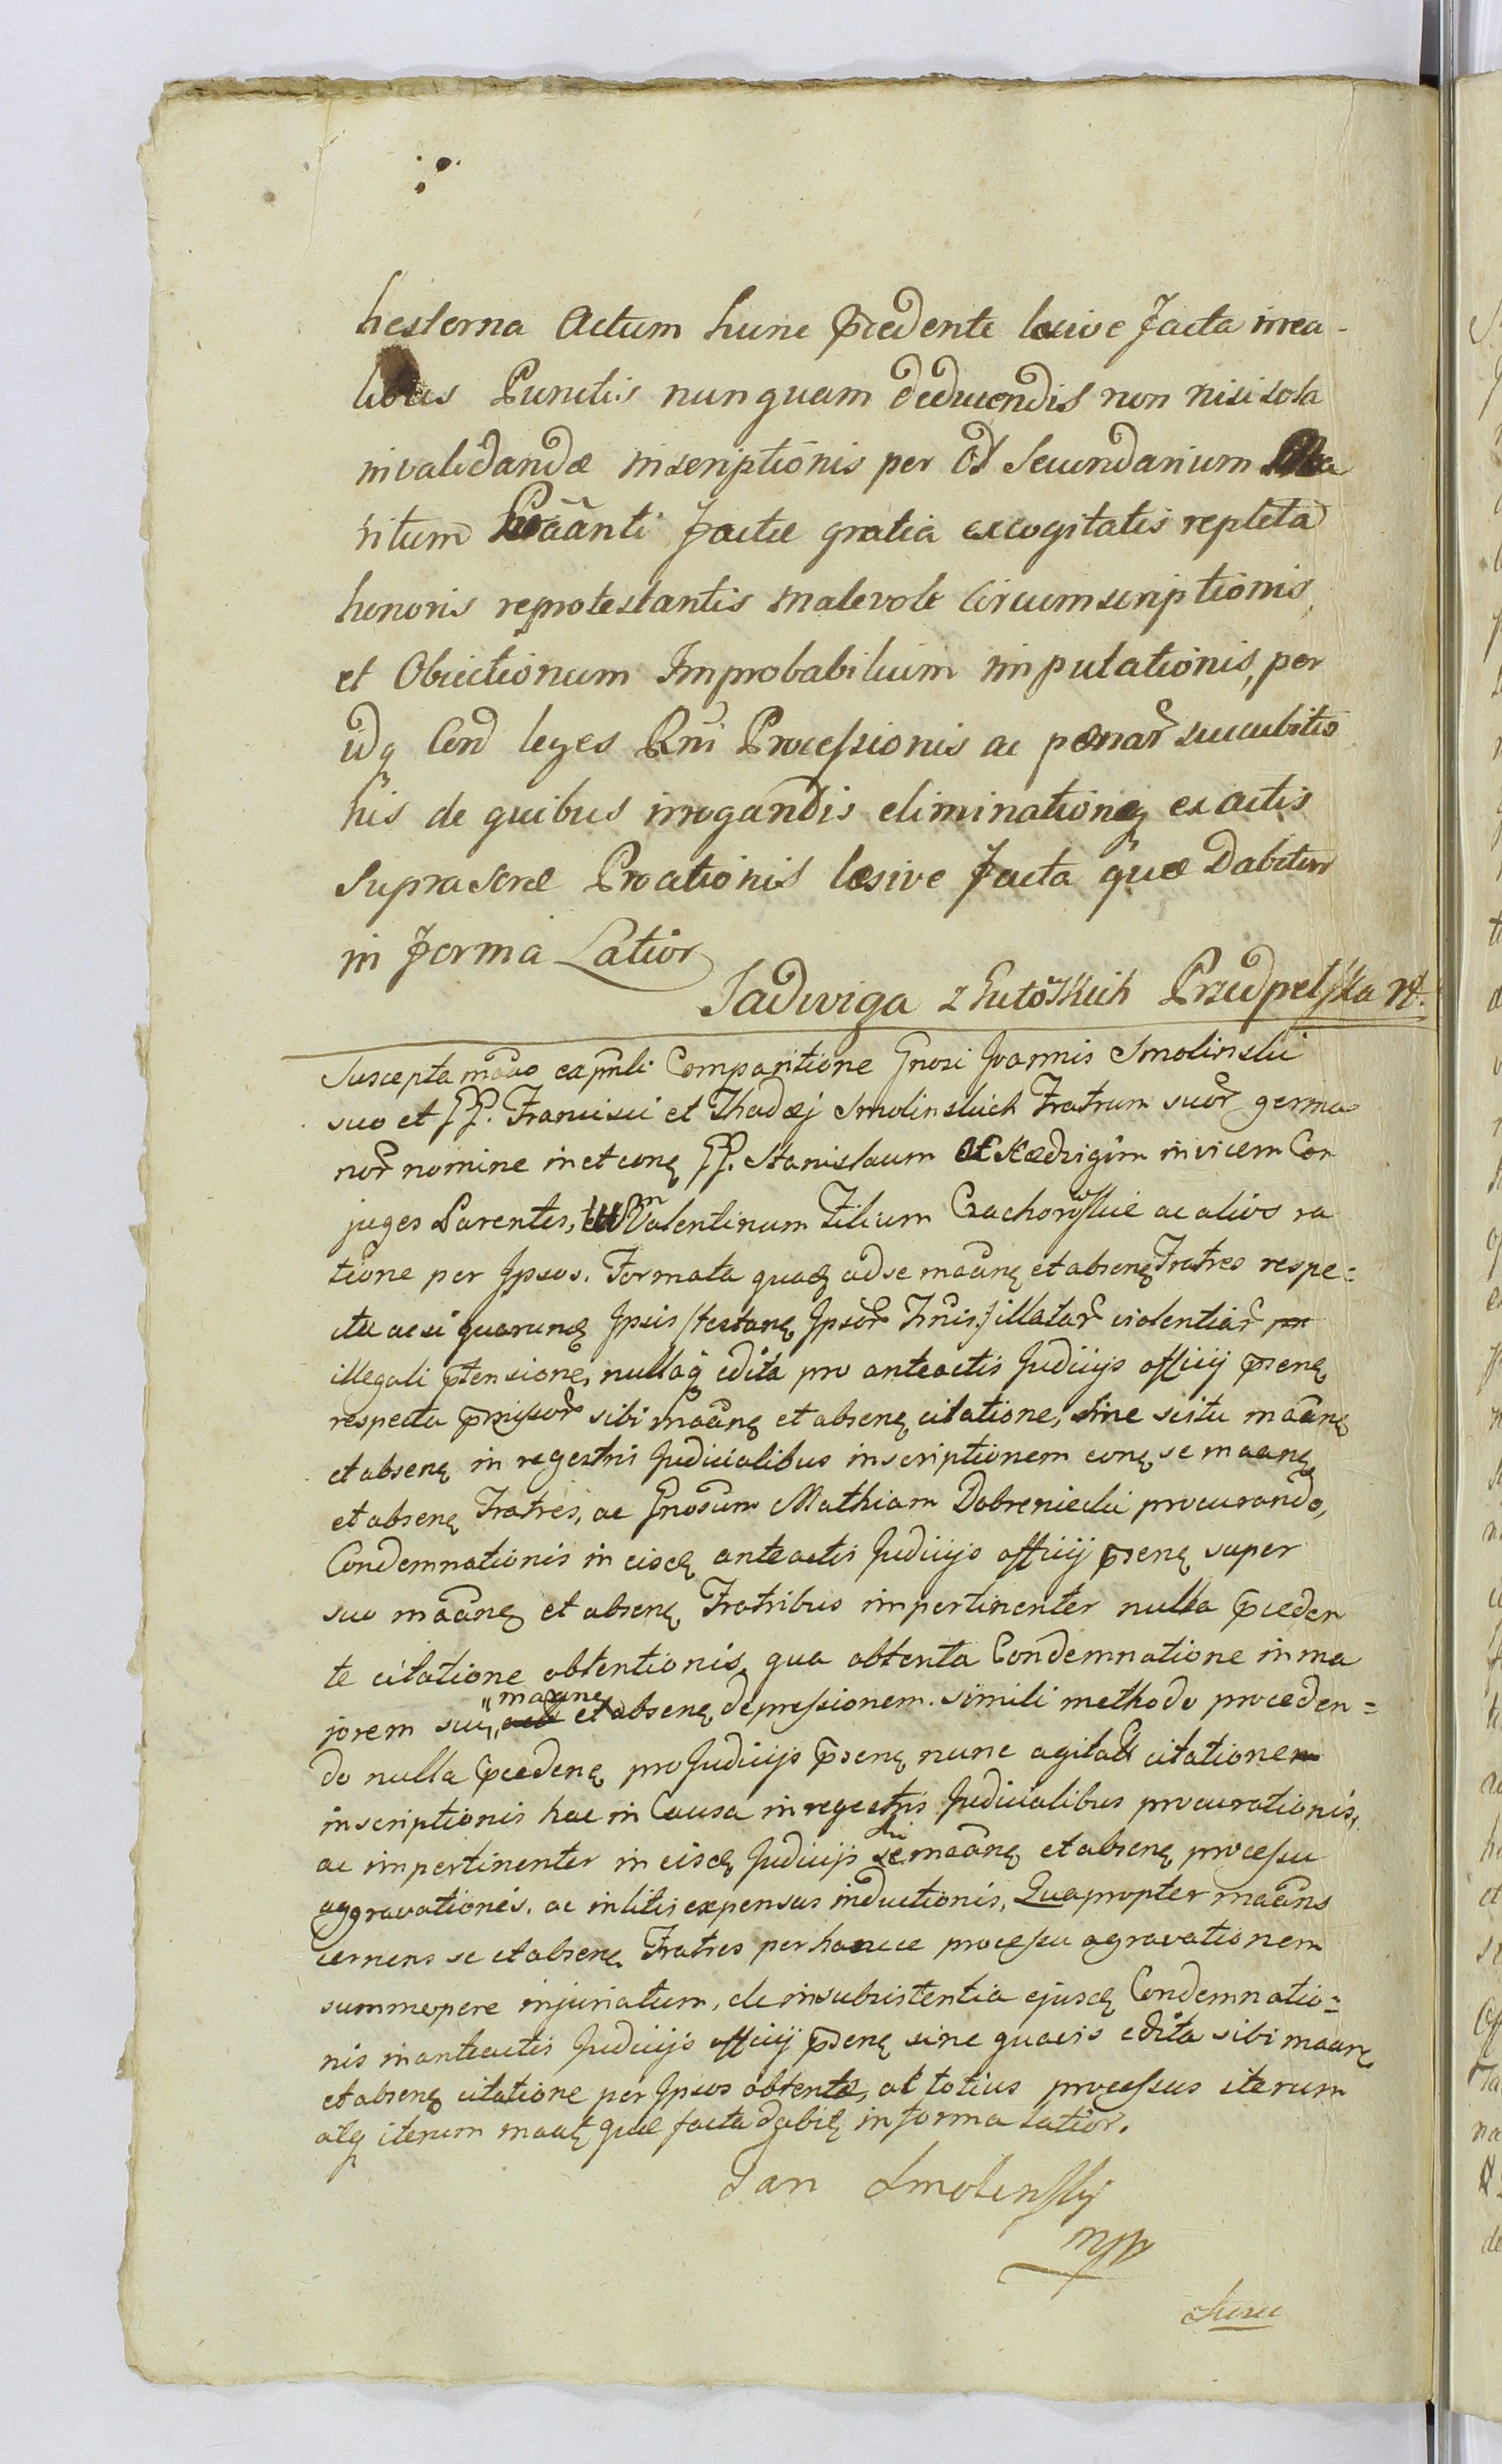 hesterna Actum hunc præcedente læsive facta irrea-
libus Punctis nunquam deducendis non nisi sola
invalidandæ inscriptionis per Od Secundarium
ritum factæ gratia excogitatis repleta
honoris reprotestantis malevole Circumscriptionis,
et Obiectionum Improbabilium imputationis, per
idq Cond leges Rni Processionis ac pœnar̃ succubitio
nis de quibus irrogandis eliminationeq ex actis
supra scræ Proationis læsive facta quæ Dabitur
in forma Latior
Jadwiga z Przedpełska
Suscepta Comparitione Gnosi Joannis Smolinski
suo et GG. Francisci et Thadæj Smolinskich Fratrum suor̃ germa
nor̃ nomine in et conq GG. Stanislaum et Hedvigim invicem Con
juges Parentes, Valentinum Filium Czachorowskie ac alios ra
tione per Ipsos. Formata quadq ad se maãnq et absenq Fratres respe=
ctu acsi quarunq Ipsis /testanq Ipsor̃ illatar̃ violentiar̃
illegali p̃tensione, nullaq edita pro anteactis Judicijs officij p̃senq
respectu p̃missor̃ sibi maãnq et absenq citatione, sine scitu maãnq
et absenq in regestris Judicialibus inscriptionem conq se maanq
et absenq Fratres, ac Gnosum Mathiam Dobreniecki procurando,
Condemnationis in eisdq anteactis Judicijs officij p̃senq super
suo maãnq et absenq Fratribus impertinenter nulla p̃ceden
te citatione obtentionis, qua obtenta Condemnatione in ma
jorem sui maãnq et absenq depressionem. simili methodo proceden=
do nulla p̃cedenq pro Judicijs p̃senq nunc agitatt citatione
inscriptionis hac in Causa in regestris Judicialibus procurationis,
ac impertinenter in eisdq Judicijs sui maãnq et absenq processu
aggravationis. ac in litis expensas inductionis, Quapropter maãns
cernens se et absenq Fratres per hancce processu agravationem
summopere injuriatum, de insubsistentia ejusdq Condemnatio=
nis in anteactis Judicijs officij p̃senq sine quavis edita sibi maanq
et absenq citatione per Ipsos obtentæ, ac totius processus iterum
atq iterum maatq quæ facta dabitq in forma latior.
Jan Smolenskj
mp